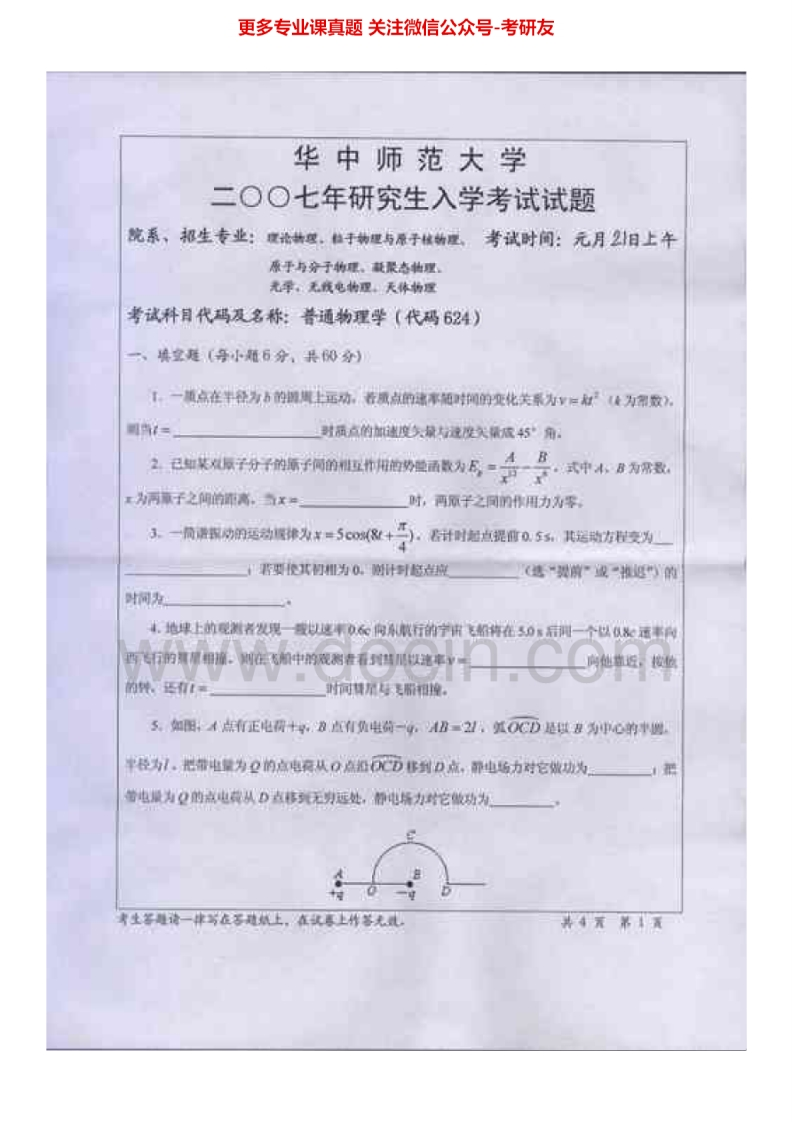 更多专业课真题 关注微信公众号-考研友
华中师范大学
二〇〇七年研究生入学考试试题
院系、招生专业：理论物理、粒子物理与原子核物理、 考试时间：元月21日上午
原子与分子物理、凝聚态物理、
光学、无线电物理、天体物理
考试科目代码及名称：普通物理学（代码624）
一、填空题（每小题6分，共60分）
1．一质点在半径为b的圆周上运动，若质点的速率随时间的变化关系为v=kt²（k为常数），
则当t=____________________时质点的加速度矢量与速度矢量成45°角。
2．已知某双原子分子的原子间的相互作用的势能函数为Eₚ=A/x¹²−B/x⁶，式中A、B为常数，
x为两原子之间的距离，当x=______________时，两原子之间的作用力为零。
3．一简谐振动的运动规律为x=5cos(8t+π/4)，若计时起点提前0.5s，其运动方程变为___
________________；若要使其初相为0，则计时起点应__________（选“提前”或“推迟”）的
时间为________________。
4．地球上的观测者发现一艘以速率0.6c向东航行的宇宙飞船将在5.0s后同一个以0.8c速率向
西飞行的彗星相撞。则在飞船中的观测者看到彗星以速率v=________________向他靠近，按他
的钟，还有t=________________时间彗星与飞船相撞。
www.docin.com
5．如图，A点有正电荷+q，B点有负电荷−q，AB=2l，弧OCD是以B为中心的半圆，
半径为l。把带电量为Q的点电荷从O点沿OCD移到D点，静电场力对它做功为_________；把
带电量为Q的点电荷从D点移到无穷远处，静电场力对它做功为_________。
C
A B
+q O −q D
考生答题请一律写在答题纸上，在试卷上作答无效。 共4页 第1页